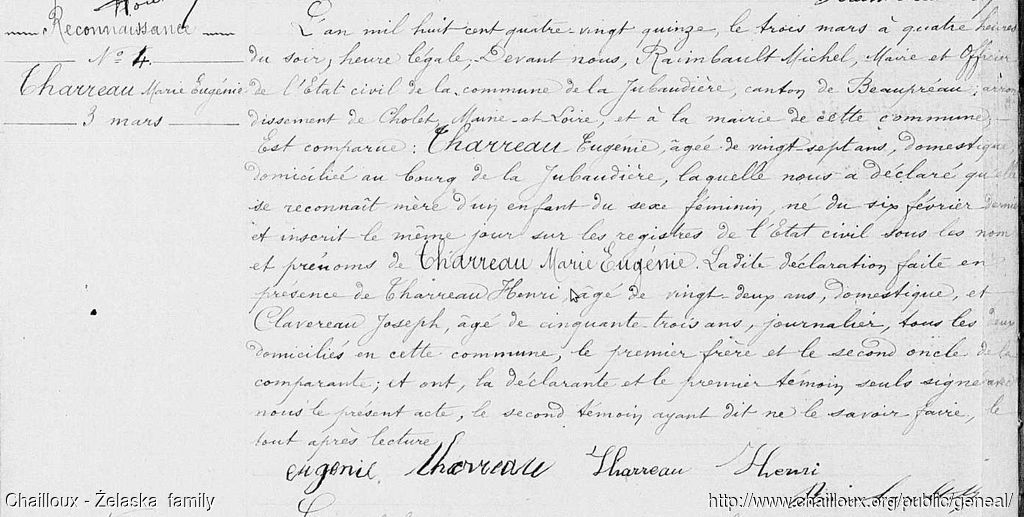 Reconnaissance
N° 4
Tharreau Marie Eugénie
3 mars
L'an mil huit cent quatre-vingt quinze, le trois mars à quatre heures
du soir, heure légale, Devant nous, Raimbault Michel, Maire et Officier
de l'Etat civil de la commune de la Jubaudière, canton de Beaupréau, arron
dissement de Cholet, Maine-et-Loire, et à la mairie de cette commune,
Est comparue : Tharreau Eugénie, âgée de vingt-sept ans, domestique
domiciliée au bourg de la Jubaudière, laquelle nous a déclaré qu'elle
se reconnaît mère d'un enfant du sexe féminin, né du six février dernier
et inscrit le même jour sur les registres de l'Etat civil sous les nom
et prénoms de Tharreau Marie Eugénie. Ladite déclaration faite en
présence de Tharreau Henri, âgé de vingt-deux ans, domestique, et
Clavereau Joseph, âgé de cinquante trois ans, journalier, tous les deux
domiciliés en cette commune, le premier frère et le second oncle de la
comparante; et ont, la déclarante et le premier témoin seuls signé avec
nous le présent acte, le second témoin ayant dit ne le savoir faire, le
tout après lecture
eugenie Tharreau Tharreau Henri
Chailloux - Żelaska family
http://www.chailloux.org/public/geneal/